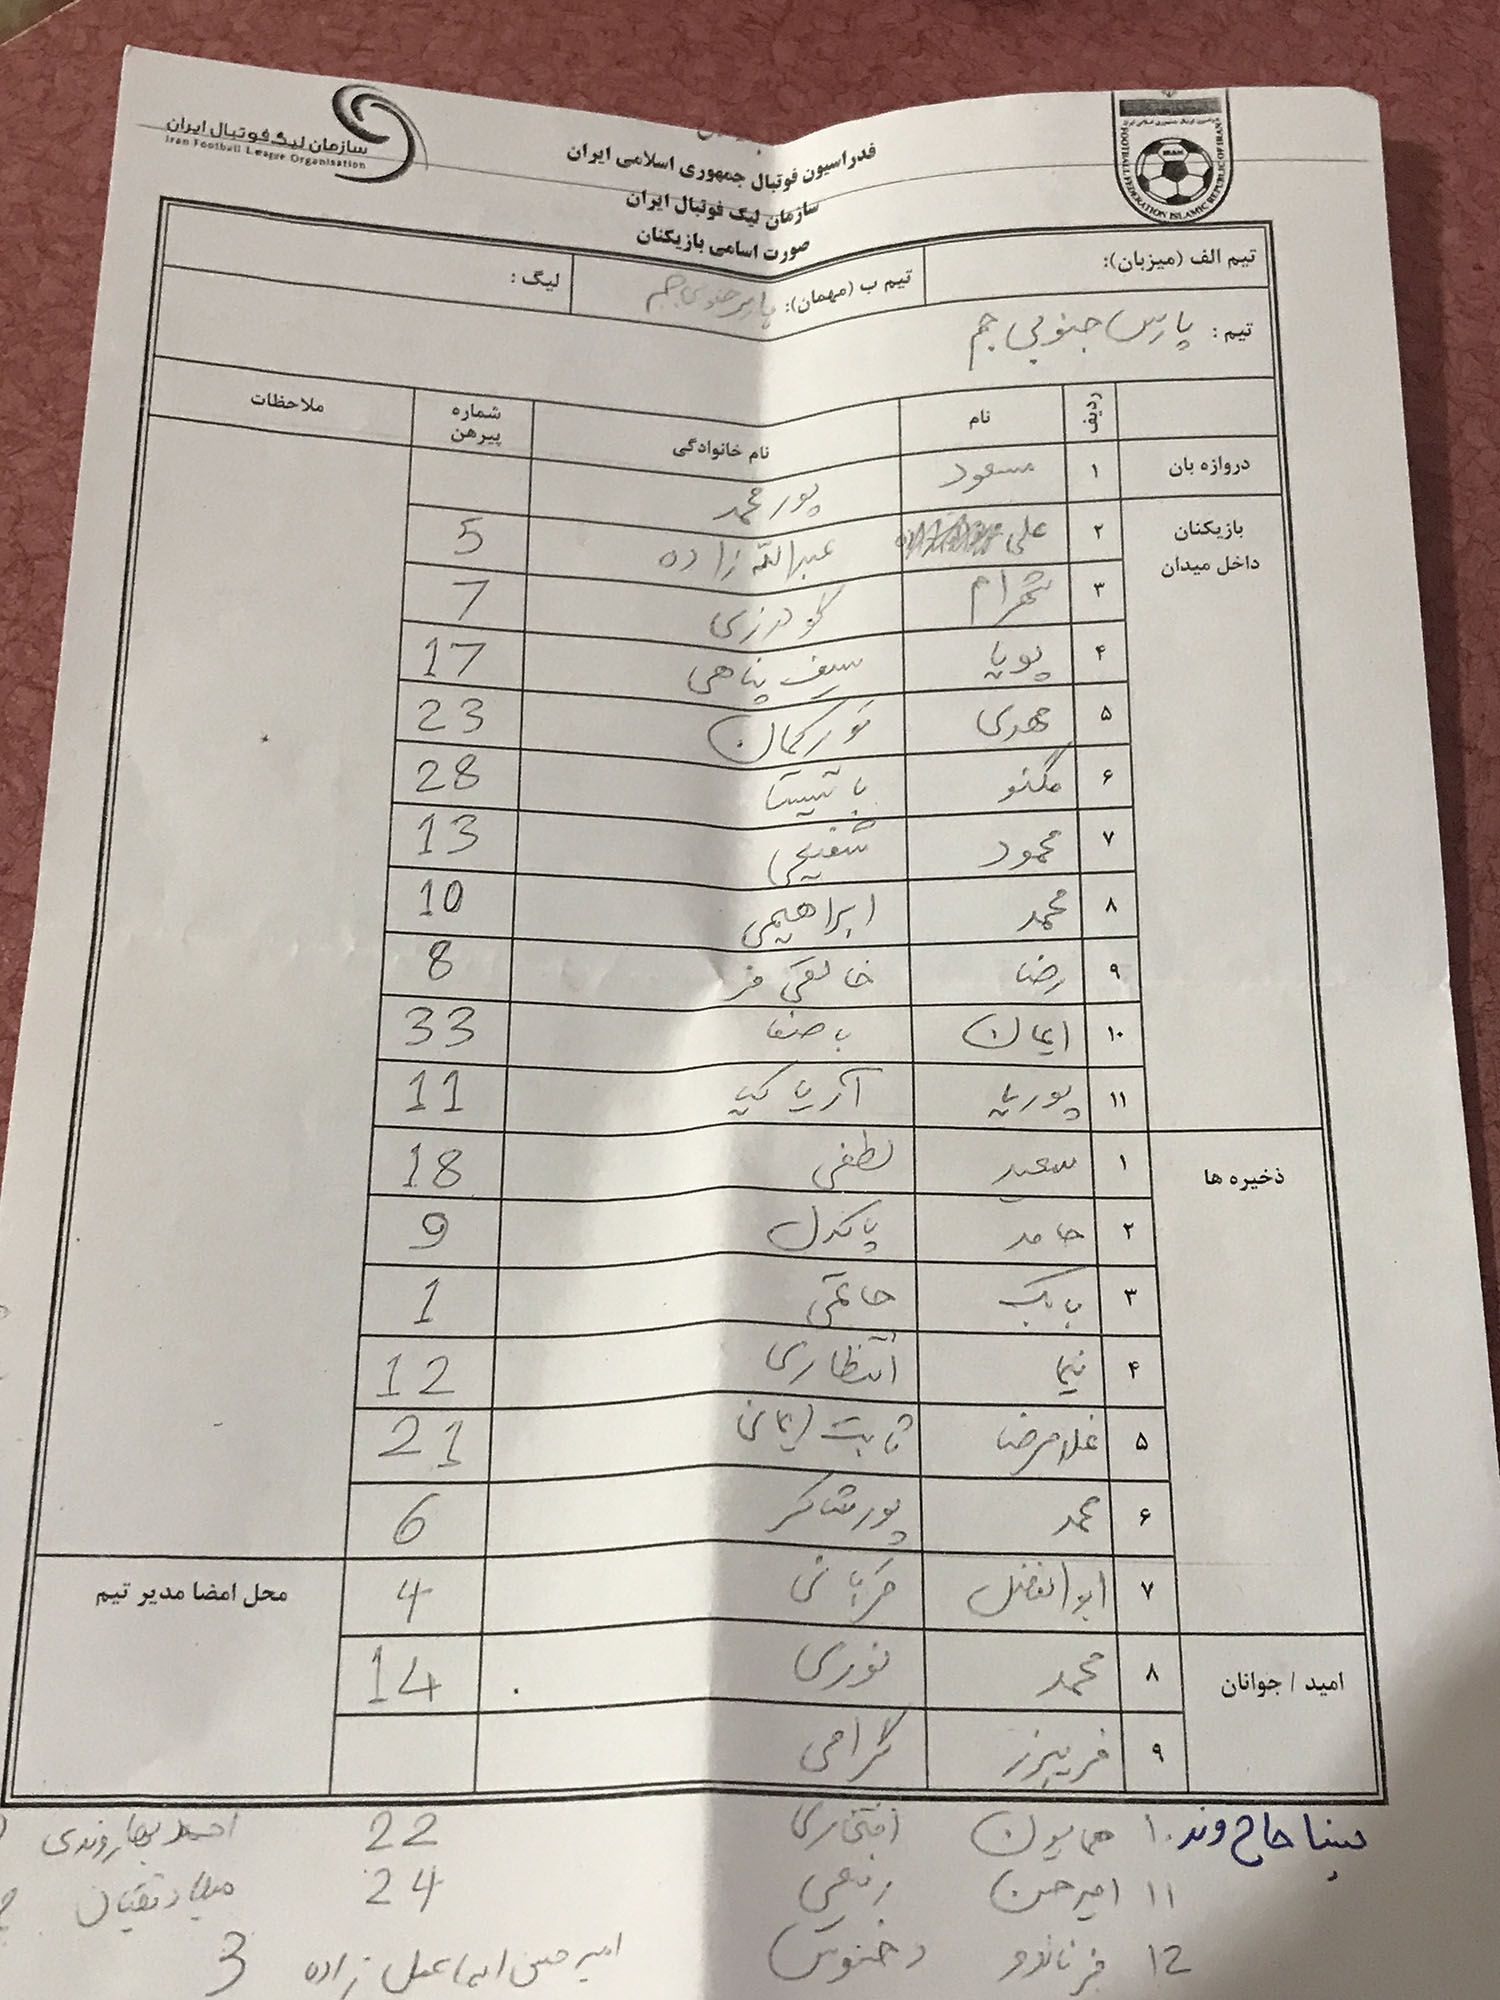 سازمان لیگ فوتبال ایران
Iran Football League Organisation
IRAN
FOOTBALL FEDERATION ISLAMIC REPUBLIC OF IRAN
فدراسیون فوتبال جمهوری اسلامی ایران
سازمان لیگ فوتبال ایران
صورت اسامی بازیکنان
تیم الف (میزبان): تیم ب (مهمان): پارس جنوبی جم لیگ :
تیم : پارس جنوبی جم
ردیف نام نام خانوادگی شماره پیرهن ملاحظات
دروازه بان ۱ مسعود پور محمد
بازیکنان داخل میدان ۲ علی عبدالله زاده 5
۳ شهرام گودرزی 7
۴ پویا سیف پناهی 17
۵ مهدی تورکمان 23
۶ مگنو باتیستا 28
۷ محمود شفیعی 13
۸ محمد ابراهیمی 10
۹ رضا خالقی فر 8
۱۰ ایمان باصفا 33
۱۱ پوریا آریا کیا 11
ذخیره ها ۱ سعید لطفی 18
۲ حامد پاکدل 9
۳ بابک حاتمی 1
۴ نیما انتظاری 12
۵ غلامرضا ثابت ایمانی 21
۶ محمد پور شاکر 6
۷ ابوالفضل قربانی 4 محل امضا مدیر تیم
امید / جوانان ۸ محمد نوری 14
۹ فریبرز گرامی
سینا حاج وند ۱۰ همایون افتخاری 22 احمد بهاروندی
۱۱ امیر حسن رفیعی 24 میلاد تقیان
12 فرناندو دخنوس امیر حسین اسماعیل زاده 3